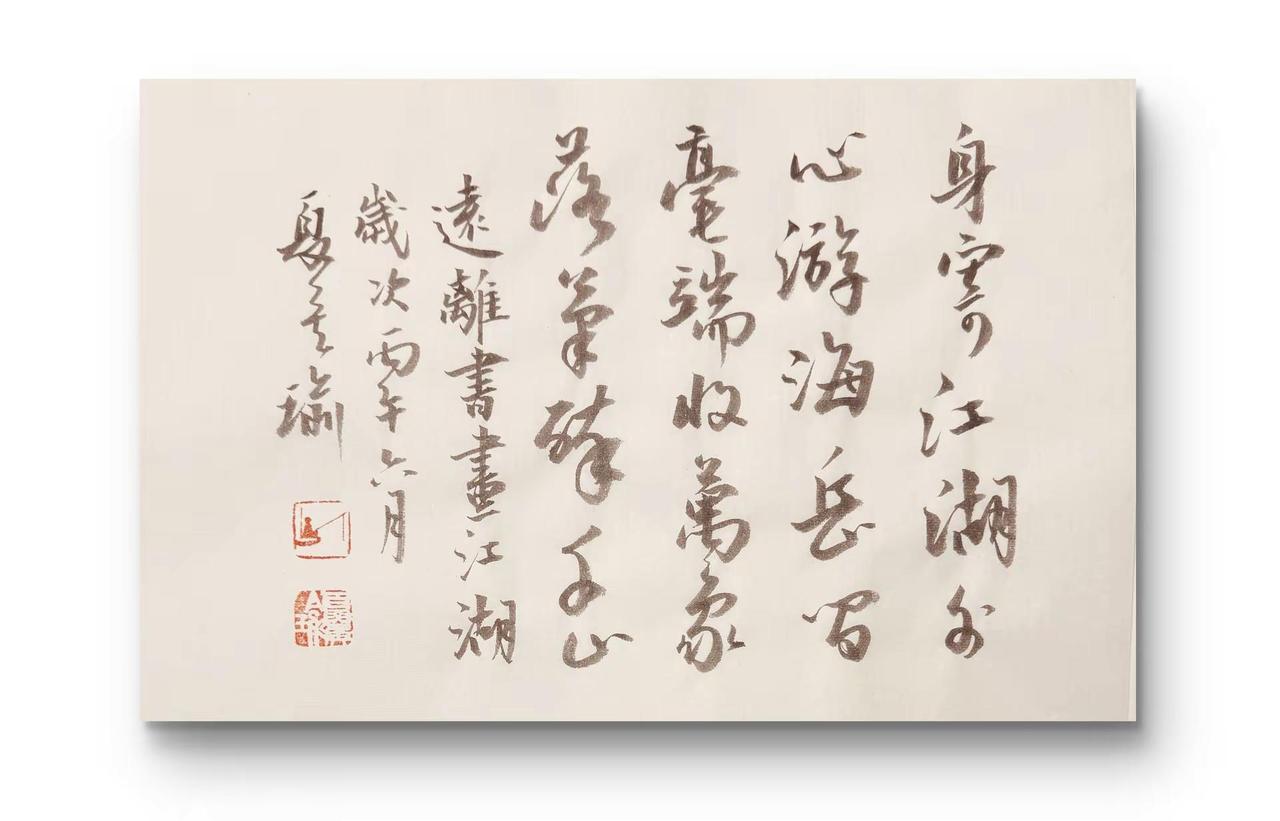 身寄江湖外
心游海岳間
毫端收萬象
落筆醉千山
遠離書畫江湖
歲次丙午六月
夏 瑜